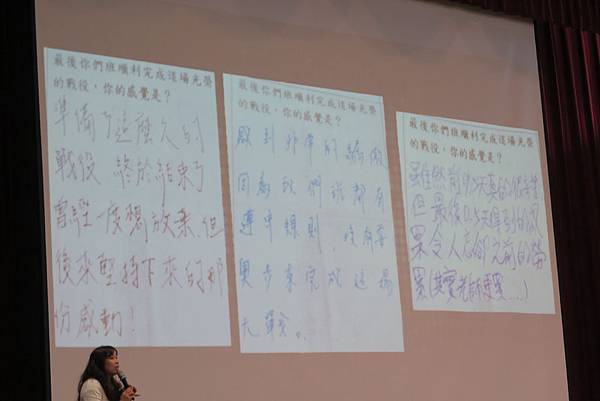 最後你們班順利完成這場光榮
的戰役，你的感覺是？
準備了這麼久的
戰役 終於結束了
曾經一度想放棄，但
後來堅持下來的那
份感動！
最後你們班順利完成這場光榮
的戰役，你的感覺是？
感到非常的驕傲
因為我們班都有
遵守規則，沒有要
奧步來完成這場
大賽。
最後你們班順利完成這場光榮
的戰役，你的感覺是？
雖然前92天真的很辛苦
但最後0.5天得到的成
果令人忘卻之前的勞
累(其實老師更累....)